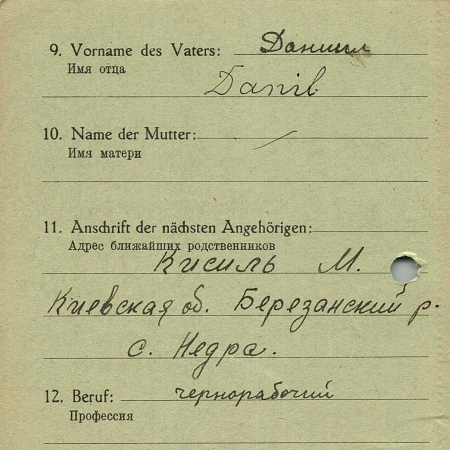 9. Vorname des Vaters: Даниил
Имя отца
Danil
10. Name der Mutter: —
Имя матери
11. Anschrift der nächsten Angehörigen:
Адрес ближайших родственников
Кисиль М.
Киевская об. Березанский р.
с. Недра.
12. Beruf: чернорабочий
Профессия